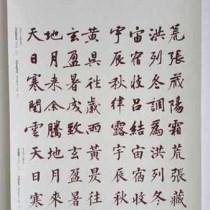 天地玄黃宇宙洪荒
日月盈昃辰宿列張
寒來暑往秋收冬藏
閏餘成歲律呂調陽
雲騰致雨露結為霜
天地玄黃宇宙洪荒
日月盈昃辰宿列張
寒來暑往秋收冬藏